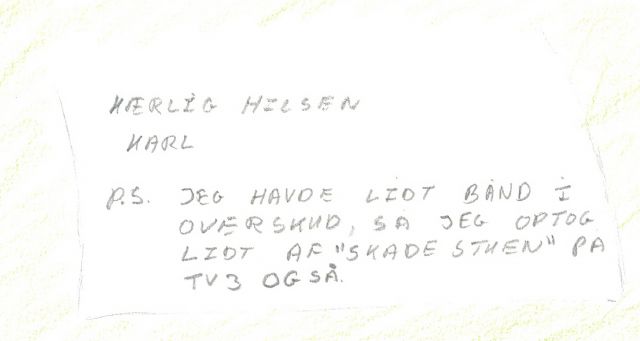 KÆRLIG HILSEN
KARL
P.S. JEG HAVDE LIDT BÅND I
OVERSKUD, SÅ JEG OPTOG
LIDT AF "SKADESTUEN" PÅ
TV3 OGSÅ.